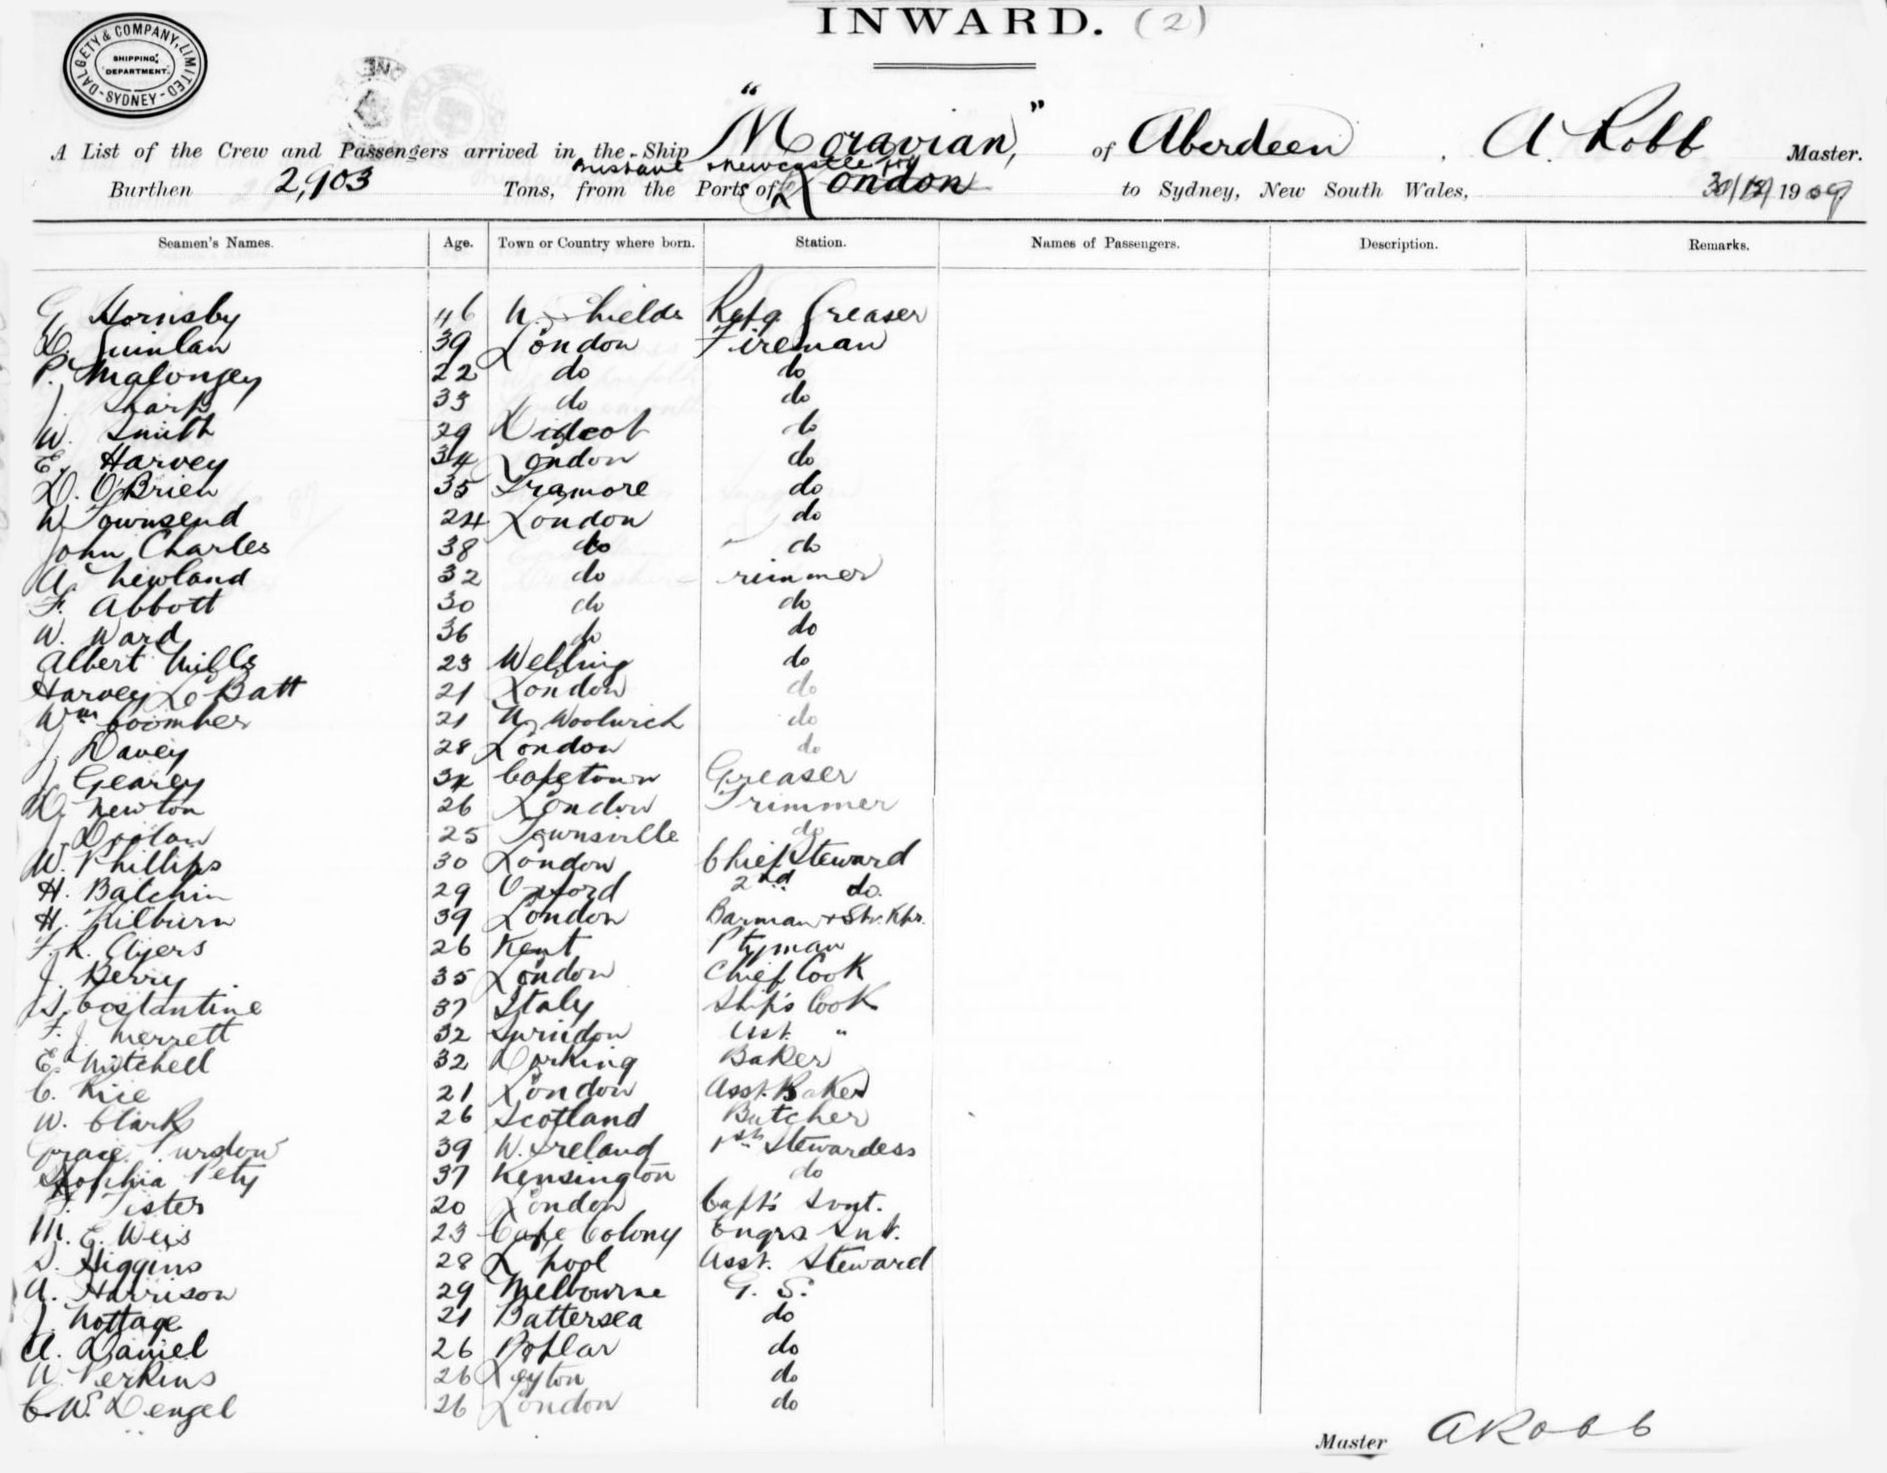 INWARD. (2)
DALGETY & COMPANY, LIMITED
SHIPPING DEPARTMENT.
SYDNEY
A List of the Crew and Passengers arrived in the Ship "Moravian," of Aberdeen, A. Robb Master.
Brisbane Newcastle
Burthen 2,903 Tons, from the Ports of London to Sydney, New South Wales, 1909
Seamen's Names. Age. Town or Country where born. Station. Names of Passengers. Description. Remarks.
G Hornsby 46 N. Shields Refg Greaser
Quinlan 39 London Fireman
P. 22 do do
J. Sharp 33 do do
W. Smith 29 Didcot do
E. Harvey 34 London do
D. O'Brien 35 Tramore do
W Townsend 24 London do
John Charles 38 do do
A. Newland 32 do Trimmer
F. Abbott 30 do do
W. Ward 36 do do
Albert Mills 23 Welling do
Harvey Le Batt 21 London do
Wm Coomber 21 N. Woolwich do
J. Davey 28 London do
J. Gearey 34 Capetown Greaser
Newton 26 London Trimmer
J. Doolan 25 Townsville do
W. Phillips 30 London Chief Steward
H. Batchin 29 Oxford 2nd do.
H. Kilburn 39 London Barman & Str. Kpr.
F. R. Ayers 26 Kent Ptyman
J. Berry 35 London Chief Cook
Costantine 37 Italy Ship's Cook
F. J. Merrett 32 Swindon Asst. "
E. Mitchell 32 Dorking Baker
C. Rice 21 London Asst. Baker
W. Clark 26 Scotland Butcher
Grace Purdow 39 W. Ireland 1st Stewardess
Sophia Pety 37 Kensington do
Tister 20 London Capt's Svnt.
M. E. Weis 23 Cape Colony Engrs Snt.
S. Higgins 28 L'pool Asst. Steward
A. Harrison 29 Melbourne G. S.
J. Nottage 21 Battersea do
A. Daniel 26 Poplar do
W. Perkins 26 Leyton do
C. W. Dengel 26 London do
Master A Robb